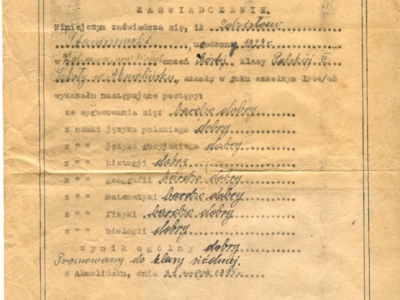 ZAŚWIADCZENIE.
Niniejszym zaświadcza się, iż Zdzisław
urodzony 1932 r.
w uczeń szóstej klasy Polskiej
Szkoły w Akmolińsku, szkoły w roku szkolnym 1944/45
wykazał następujące postępy:
ze sprawowania się: bardzo dobry
z nauki języka polskiego dobry
z "" języka rosyjskiego dobry
z "" historji dobry
z "" geografii bardzo dobry
z "" matematyki bardzo dobry
z "" fizyki bardzo dobry
z "" biologii dobry
Wynik ogólny dobry
Promowany do klasy siódmej.
w Akmolińsku, dnia